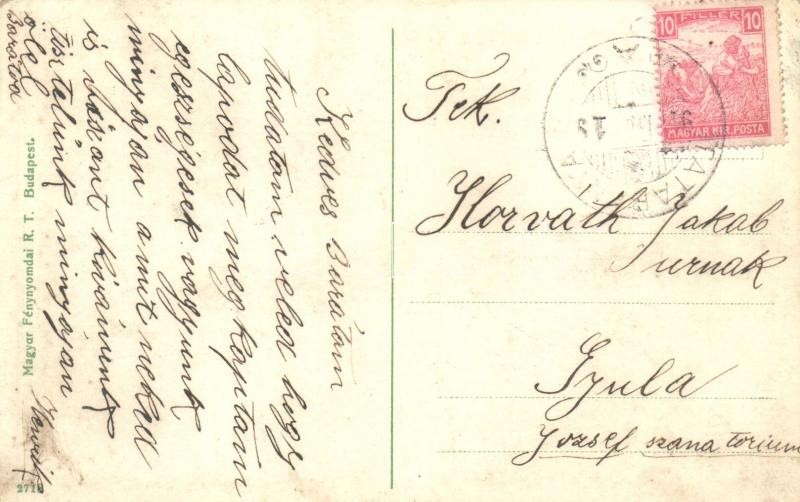 Kedves Barátom
tudatom veled hogy
lapodat meg kaptam
egeszségesek vagyunk
minyajan amit neked
is bászant kivánunk
tisztelünk minyájan
ölel
Barátod
Magyar Fénynyomdai R. T. Budapest.
2718
10 FILLÉR 10
MAGYAR KIR. POSTA
Tek.
Horváth Jakab
urnak
Gyula
Jozsef szanatorium